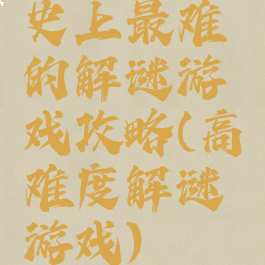 史上最难
的解谜游
戏攻略(高
难度解谜
游戏)